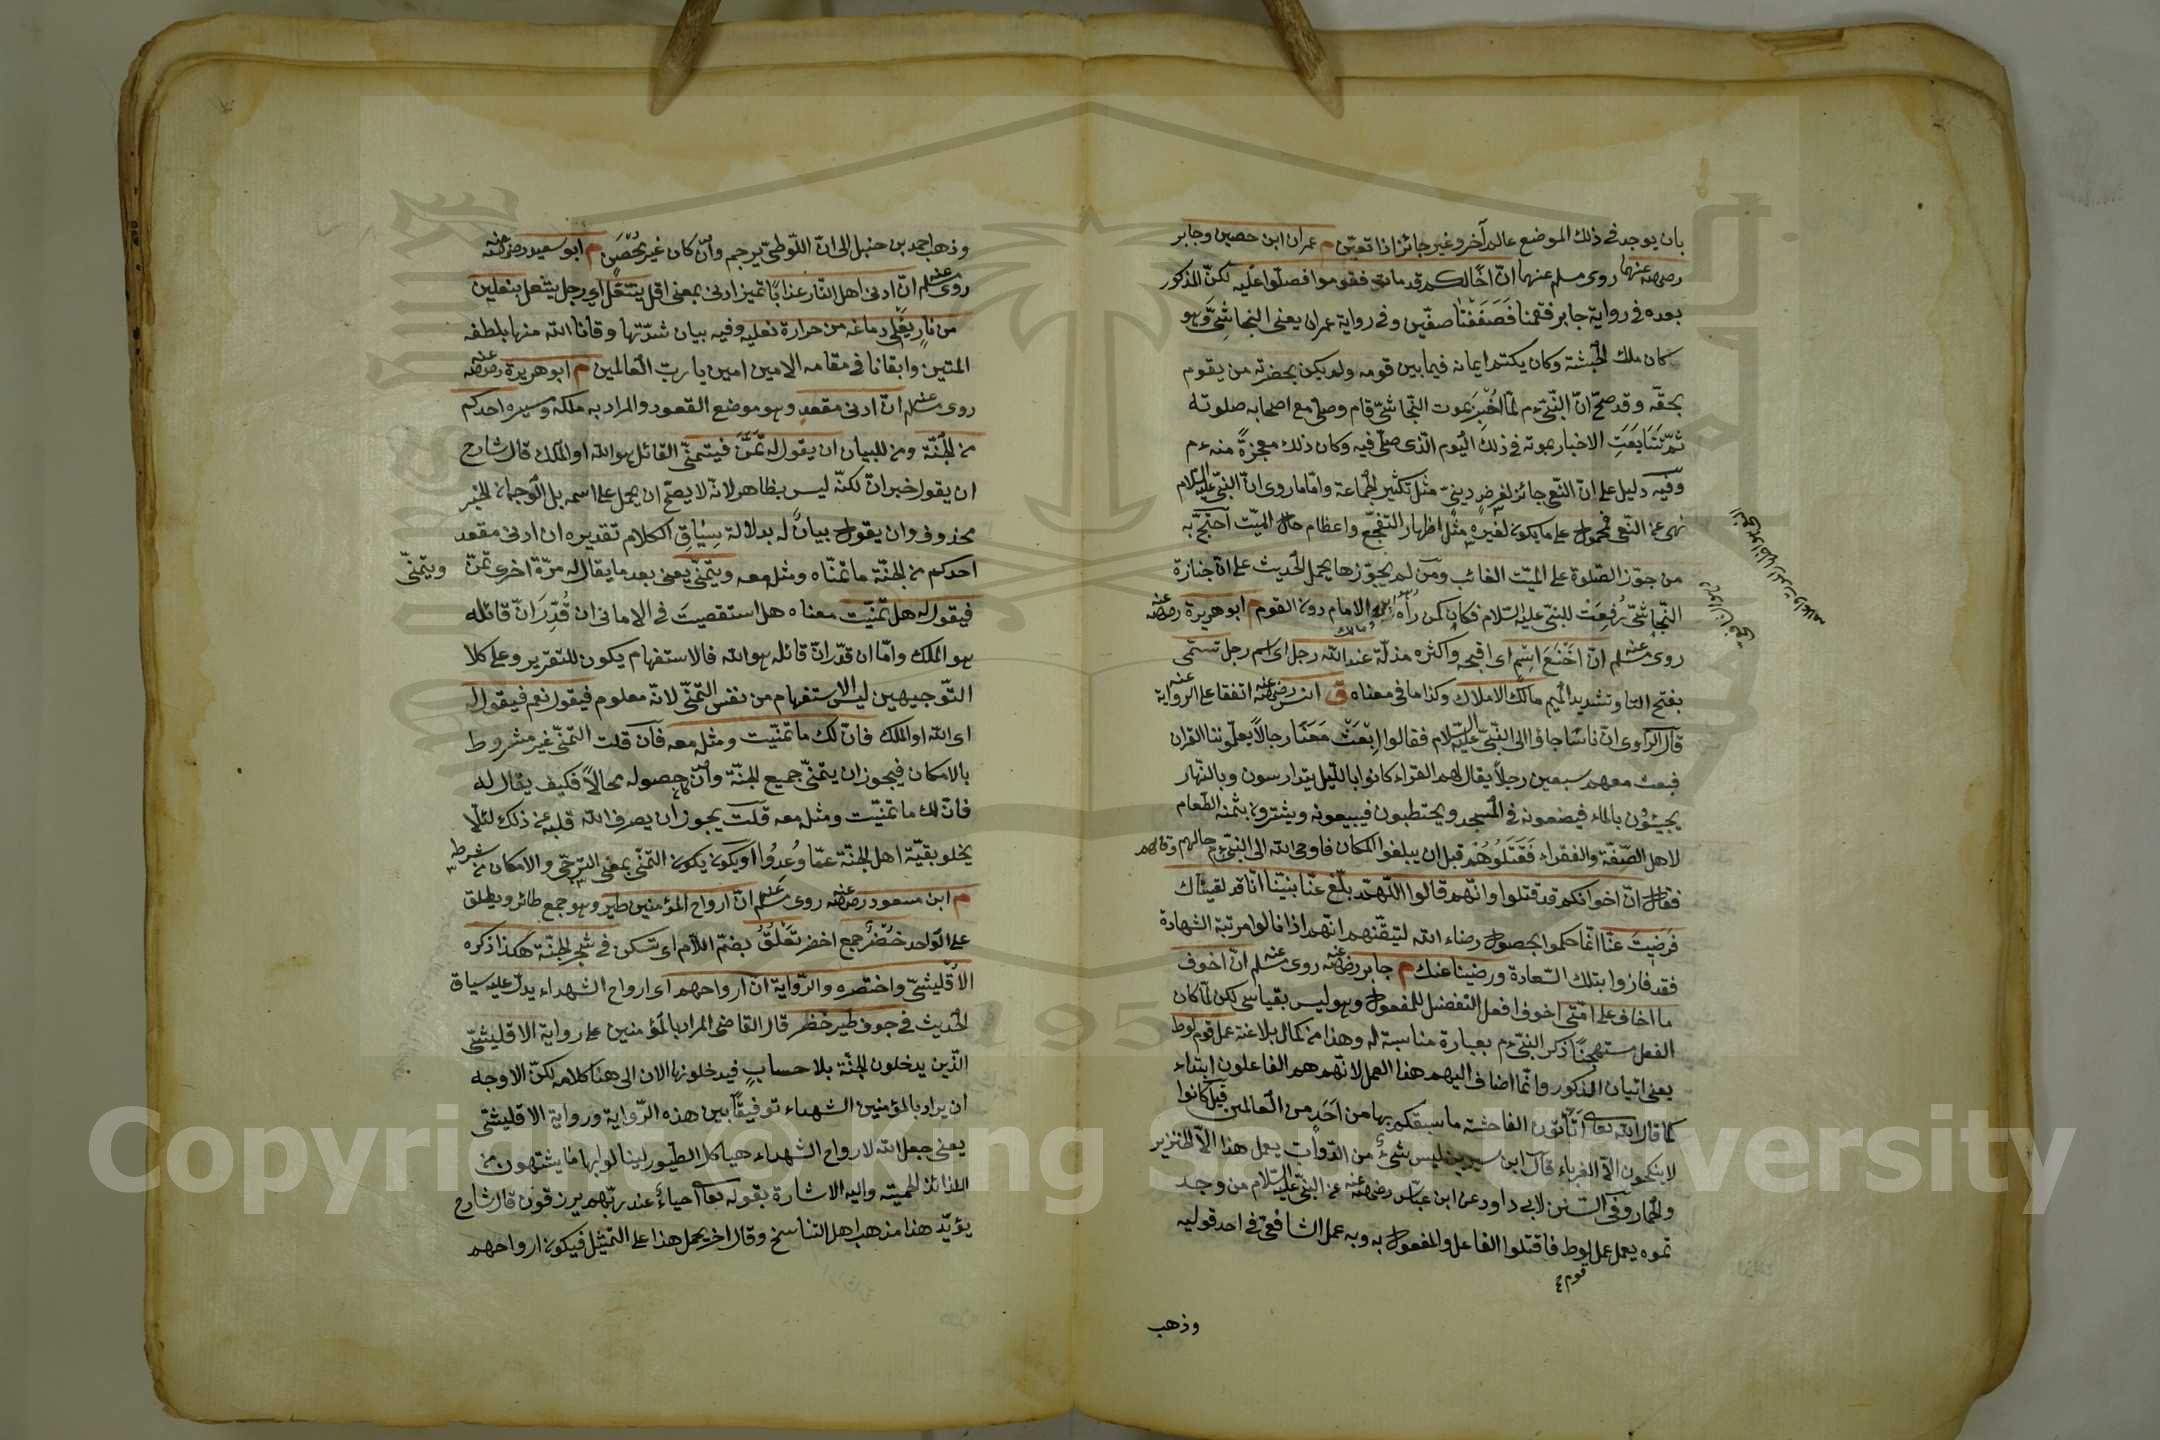 بان يوجد في ذلك الموضع عالم آخر وغير جائز اذا تعيّن م عمران ابن حصين وجابر
رضي الله عنهما روى مسلم عنهما انّ اخًا لكم قد مات فقوموا فصلّوا عليه لكنّ المذكور
بعده في رواية جابر فقمنا فَصَفَفْنا صفّين وفي رواية عمران يعني النجاشيّ وهو
كان ملك الحبشة وكان يكتم ايمانه فيما بين قومه ولم يكن بحضرته من يقوم
بحقّه وقد صحّ انّ النّبيّ م لمّا اُخْبِرَ بموت النّجاشيّ قام وصلّى مع اصحابه صلوته
ثمّ تَتَابَعَتِ الاخبار بموته في ذلك اليوم الّذى صلّى فيه وكان ذلك معجزةً منه م
وفيه دليل على انّ النّعى جائز لغرضٍ دينىّ مثل تكثير الجماعة وامّا ما روى انّ النبيّ عليه السلام
نهى عن النّعى فمحمول على ما يكون لغيره مثل اظهار التفجّع واعظام حال الميّت آحتجّ به
من جوّز الصّلوة على الميّت الغائب ومن لم يجوّزها يحمل الحديث على انّ جنازة
النّجاشىّ رُفِعَتْ للنبيّ عليه السّلام فكان كمن رآه الامام دون القوم م ابو هريرة رضي الله عنه
روى مسلم عنه انّ اَخْنَعَ اسْمٍ اى اقبحه واكثره مذلّة عند الله رجل اى اسم رجل تسمّى
بفتح التا وتشديد الميم مالك الاملاك وكذا ما في معناه ق انس رضي الله عنه اتفقا على الرواية عنه
قال الرّاوى انّ ناسًا جاؤا الى النّبيّ عليه السّلام فقالوا اِبْعَثْ مَعَنَا رجالًا يعلّموننا القرآن
فبعث معهم سبعين رجلًا يقال لهم القراء كانوا بالليل يتدارسون وبالنّهار
يجيئون بالماء فيضعونه في المسجد ويحتطبون فيبيعونه ويشترون بثمنه الطّعام
لاهل الصّفّة والفقراء فَقَتَلُوهُمْ قبل ان يبلغوا المكان فاوحى الله الى النّبيّ م حالهم وقالهم
فقال انّ اخوانكم قد قتلوا وانّهم قالوا اللّهمّ بلّغ عنّا نبيّنا انّا قد لقيناك
فَرَضِيتَ عنّا انّما حكموا بحصول رضاء الله لتيقّنهم انّهم اذا نالوا مرتبة الشهادة
فقد فازوا بتلك السّعادة ورضينا عنك م جابر رضي الله عنه روى مسلم عنه انّ اخوف
ما اخاف على امّتى اخوف افعل التفضيل للمفعول وهو ليس بقياسى لكن لمّا كان
الفعل مستهجنًا ذكر النّبيّ م بعبارة مناسبة له وهذا من كمال بلاغته عمل قوم لوط
يعنى اتيان الذكور وانّما اضاف اليهم هذا العمل لانّهم هم الفاعلون ابتداء
كما قال الله تعالى اَتَأْتُونَ الفاحشة ما سبقكم بها من اَحَدٍ من العالمين قيل كانوا
لا ينكحون الّا الغرباء قال ابن سيرين ليس شئ من الدّوابّ يعمل هذا الّا الخنزير
والحمار وفي السّنن لابى داود عن ابن عبّاس رضي الله عنه عن النبيّ عليه السّلام من وجد
تموه يعمل عمل لوط فاقتلوا الفاعل والمفعول به وبه عمل الشافعىّ في احد قوليه
قوم
وذهب
وذهب احمد بن حنبل الى انّ اللّوطىّ يرجم وان كان غير مُحْصَنٍ م ابو سعيد رضي الله عنه
روى مسلم عنه انّ ادنى اهل النّار عذابًا تميز ادنى بمعنى اقل يَنْتَعِلُ اى رجل ينتعل بنعلين
من نارٍ يَغْلِى دماغه من حرارة نعليه وفيه بيان شدّتها وقانا الله منها بلطفه
المتين وابقانا في مقامه الامين امين يا ربّ العالمين م ابو هريرة رضي الله عنه
روى مسلم عنه انّ ادنى مقعدِ وهو موضع القعود والمراد به ملكه وسيره احدكم
من الجنّة ومن للبيان ان يقول له تَمَنَّ فيتمنّى القائل هو الله او الملك قال شارح
ان يقول خبر انّ لكنّه ليس بظاهر لانّه لا يصحّ ان يحمل على اسمه بل الوجه ان الخبر
محذوف وان يقول بيانٌ له بدلالة سِيَاقِ الكلام تقديره ان ادنى مقعد
احدكم من الجنّة ما تمنّاه ومثل معه ويتمنّى يعنى بعد ما يقال له مرّة اخرى تمنّ ويتمنّى
فيقول له هل تمنّيت معناه هل استقصيتَ في الامانى ان قُدِّرَ انّ قائله
هو الملك وامّا ان قدّر انّ قائله هو الله فالاستفهام يكون للتقرير وعلى كلا
التّوجيهين ليس الاستفهام من نفس التمنّى لانّه معلوم فيقول نعم فيقول له
اى الله او الملك فانّ لك ما تمنّيت ومثله معه فان قلت التمنّى غير مشروط
بالامكان فيجوز ان يتمنّى جميع الجنّة وان حصوله محالًا فكيف يقال له
فانّ لك ما تمنّيت ومثله معه قلت يجوز ان يصرف الله قلبه عن ذلك لئلّا
يخلو بقيّة اهل الجنّة عمّا وُعِدُوا او يكون يكون التمنّى بمعنى التّرجّى والامكان من شرطه
م ابن مسعود رضي الله عنه روى مسلم عنه انّ ارواح المؤمنين طير وهو جمع طائر ويطلق
على الواحد خُضْرٌ جمع اخضر تَعْلُقُ بضمّ اللّام اى تسكن في شجر الجنّة هكذا ذكره
الاقليشىّ واختصره والرّواية انّ ارواحهم اى ارواح الشهداء يدلّ عليه سياق
الحديث في جوف طير خضر قال القاضى المراد بالمؤمنين على رواية الاقليشىّ
الّذين يدخلون الجنّة بلا حسابٍ فيدخلونها الان الى هنا كلامه لكنّ الاوجه
ان يراد بالمؤمنين الشهداء توفيقًا بين هذه الرّواية ورواية الاقليشى
يعنى جعل الله لارواح الشهداء هياكل الطيور لينالوا بها ما يشتهون من
اللذائذ الحسّيّة واليه الاشارة بقوله تعالى احياءٌ عند ربّهم يرزقون قال شارح
يؤيّد هذا مذهب اهل التناسخ وقال اخر يحمل هذا على التمثيل فيكون ارواحهم
Copyright © King Saud University
1957